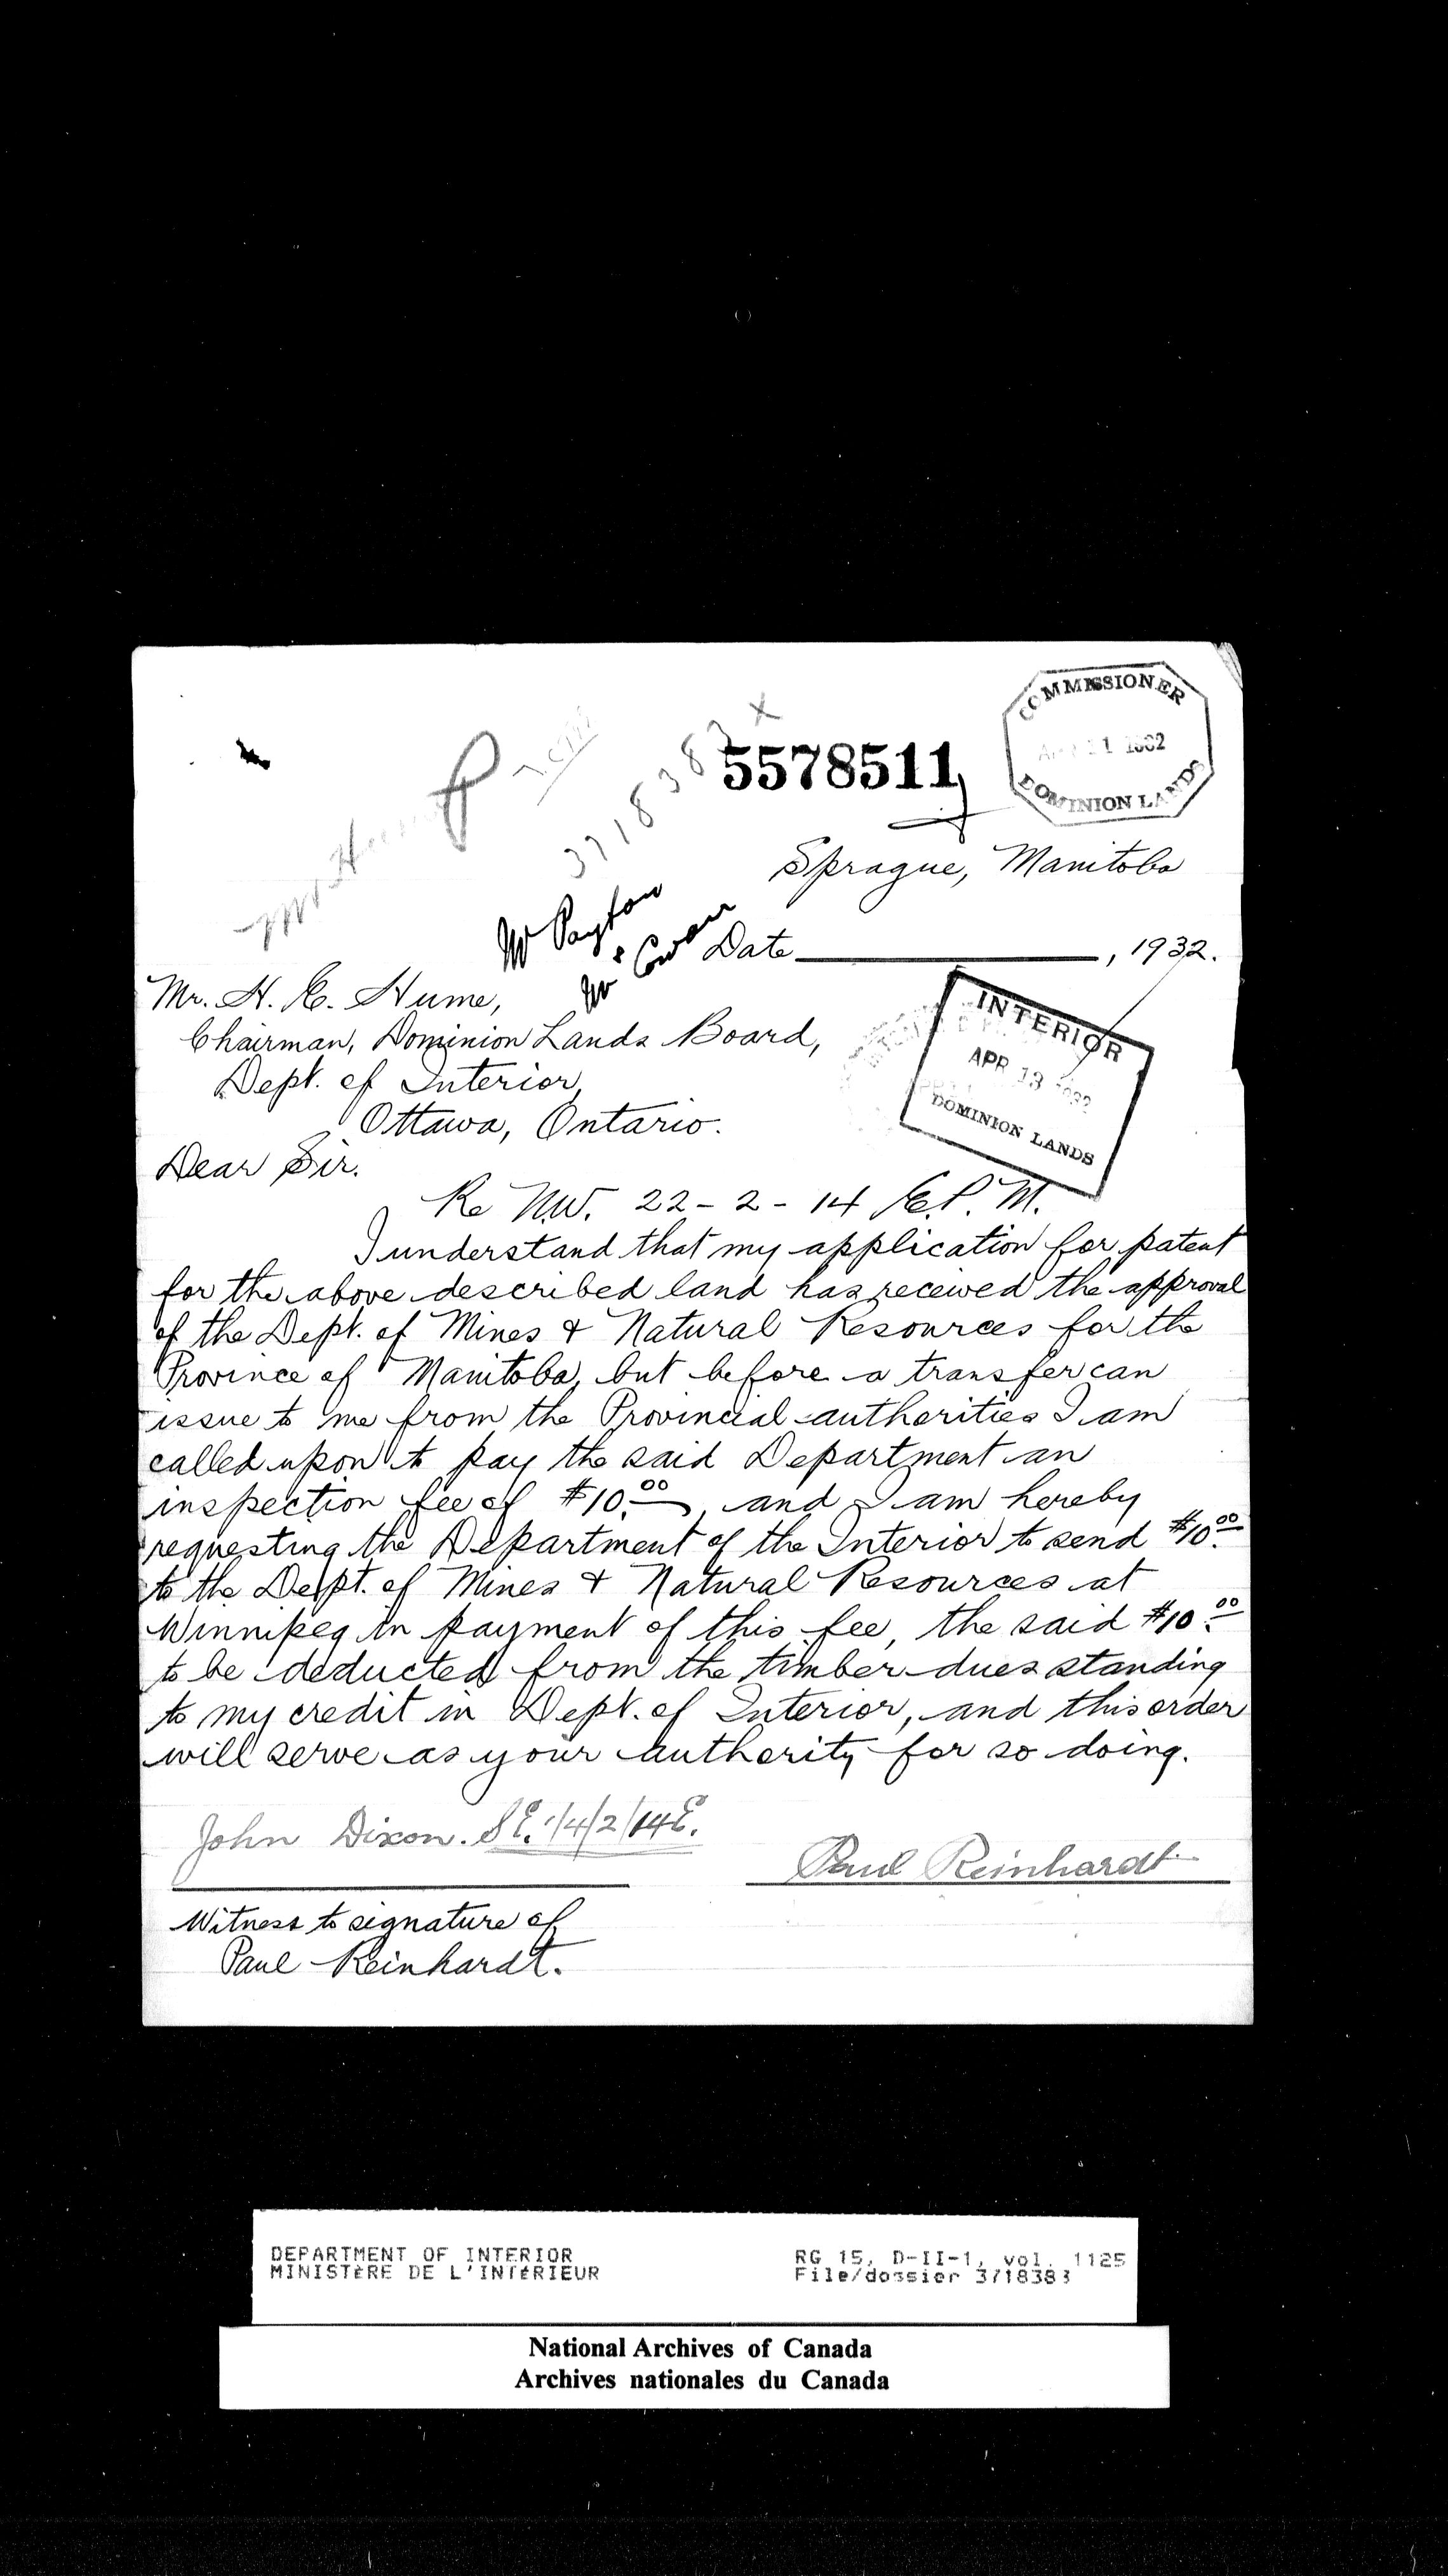 COMMISSIONER
11 1932
DOMINION LANDS
5578511
371838 X
Sprague, Manitoba
Mr Payton
Mr Cowan
Date , 1932.
Mr. H. E. Hume,
Chairman, Dominion Lands Board,
Dept. of Interior,
Ottawa, Ontario.
INTERIOR
APR 13
DOMINION LANDS
Dear Sir.
Re N.W. 22 - 2 - 14 E.P.M.
I understand that my application for patent
for the above described land has received the approval
of the Dept. of Mines & Natural Resources for the
Province of Manitoba, but before a transfer can
issue to me from the Provincial authorities I am
called upon to pay the said Department an
inspection fee of $10.00, and I am hereby
requesting the Department of the Interior to send $10.00
to the Dept. of Mines & Natural Resources at
Winnipeg in payment of this fee, the said $10.00
to be deducted from the timber dues standing
to my credit in Dept. of Interior, and this order
will serve as your authority for so doing.
John Dixon. SE. 1/4/2/14E.
Paul Reinhardt
Witness to signature of
Paul Reinhardt.
DEPARTMENT OF INTERIOR
MINISTÈRE DE L'INTÉRIEUR
RG 15, D-II-1, vol. 1125
File/dossier 3718383
National Archives of Canada
Archives nationales du Canada